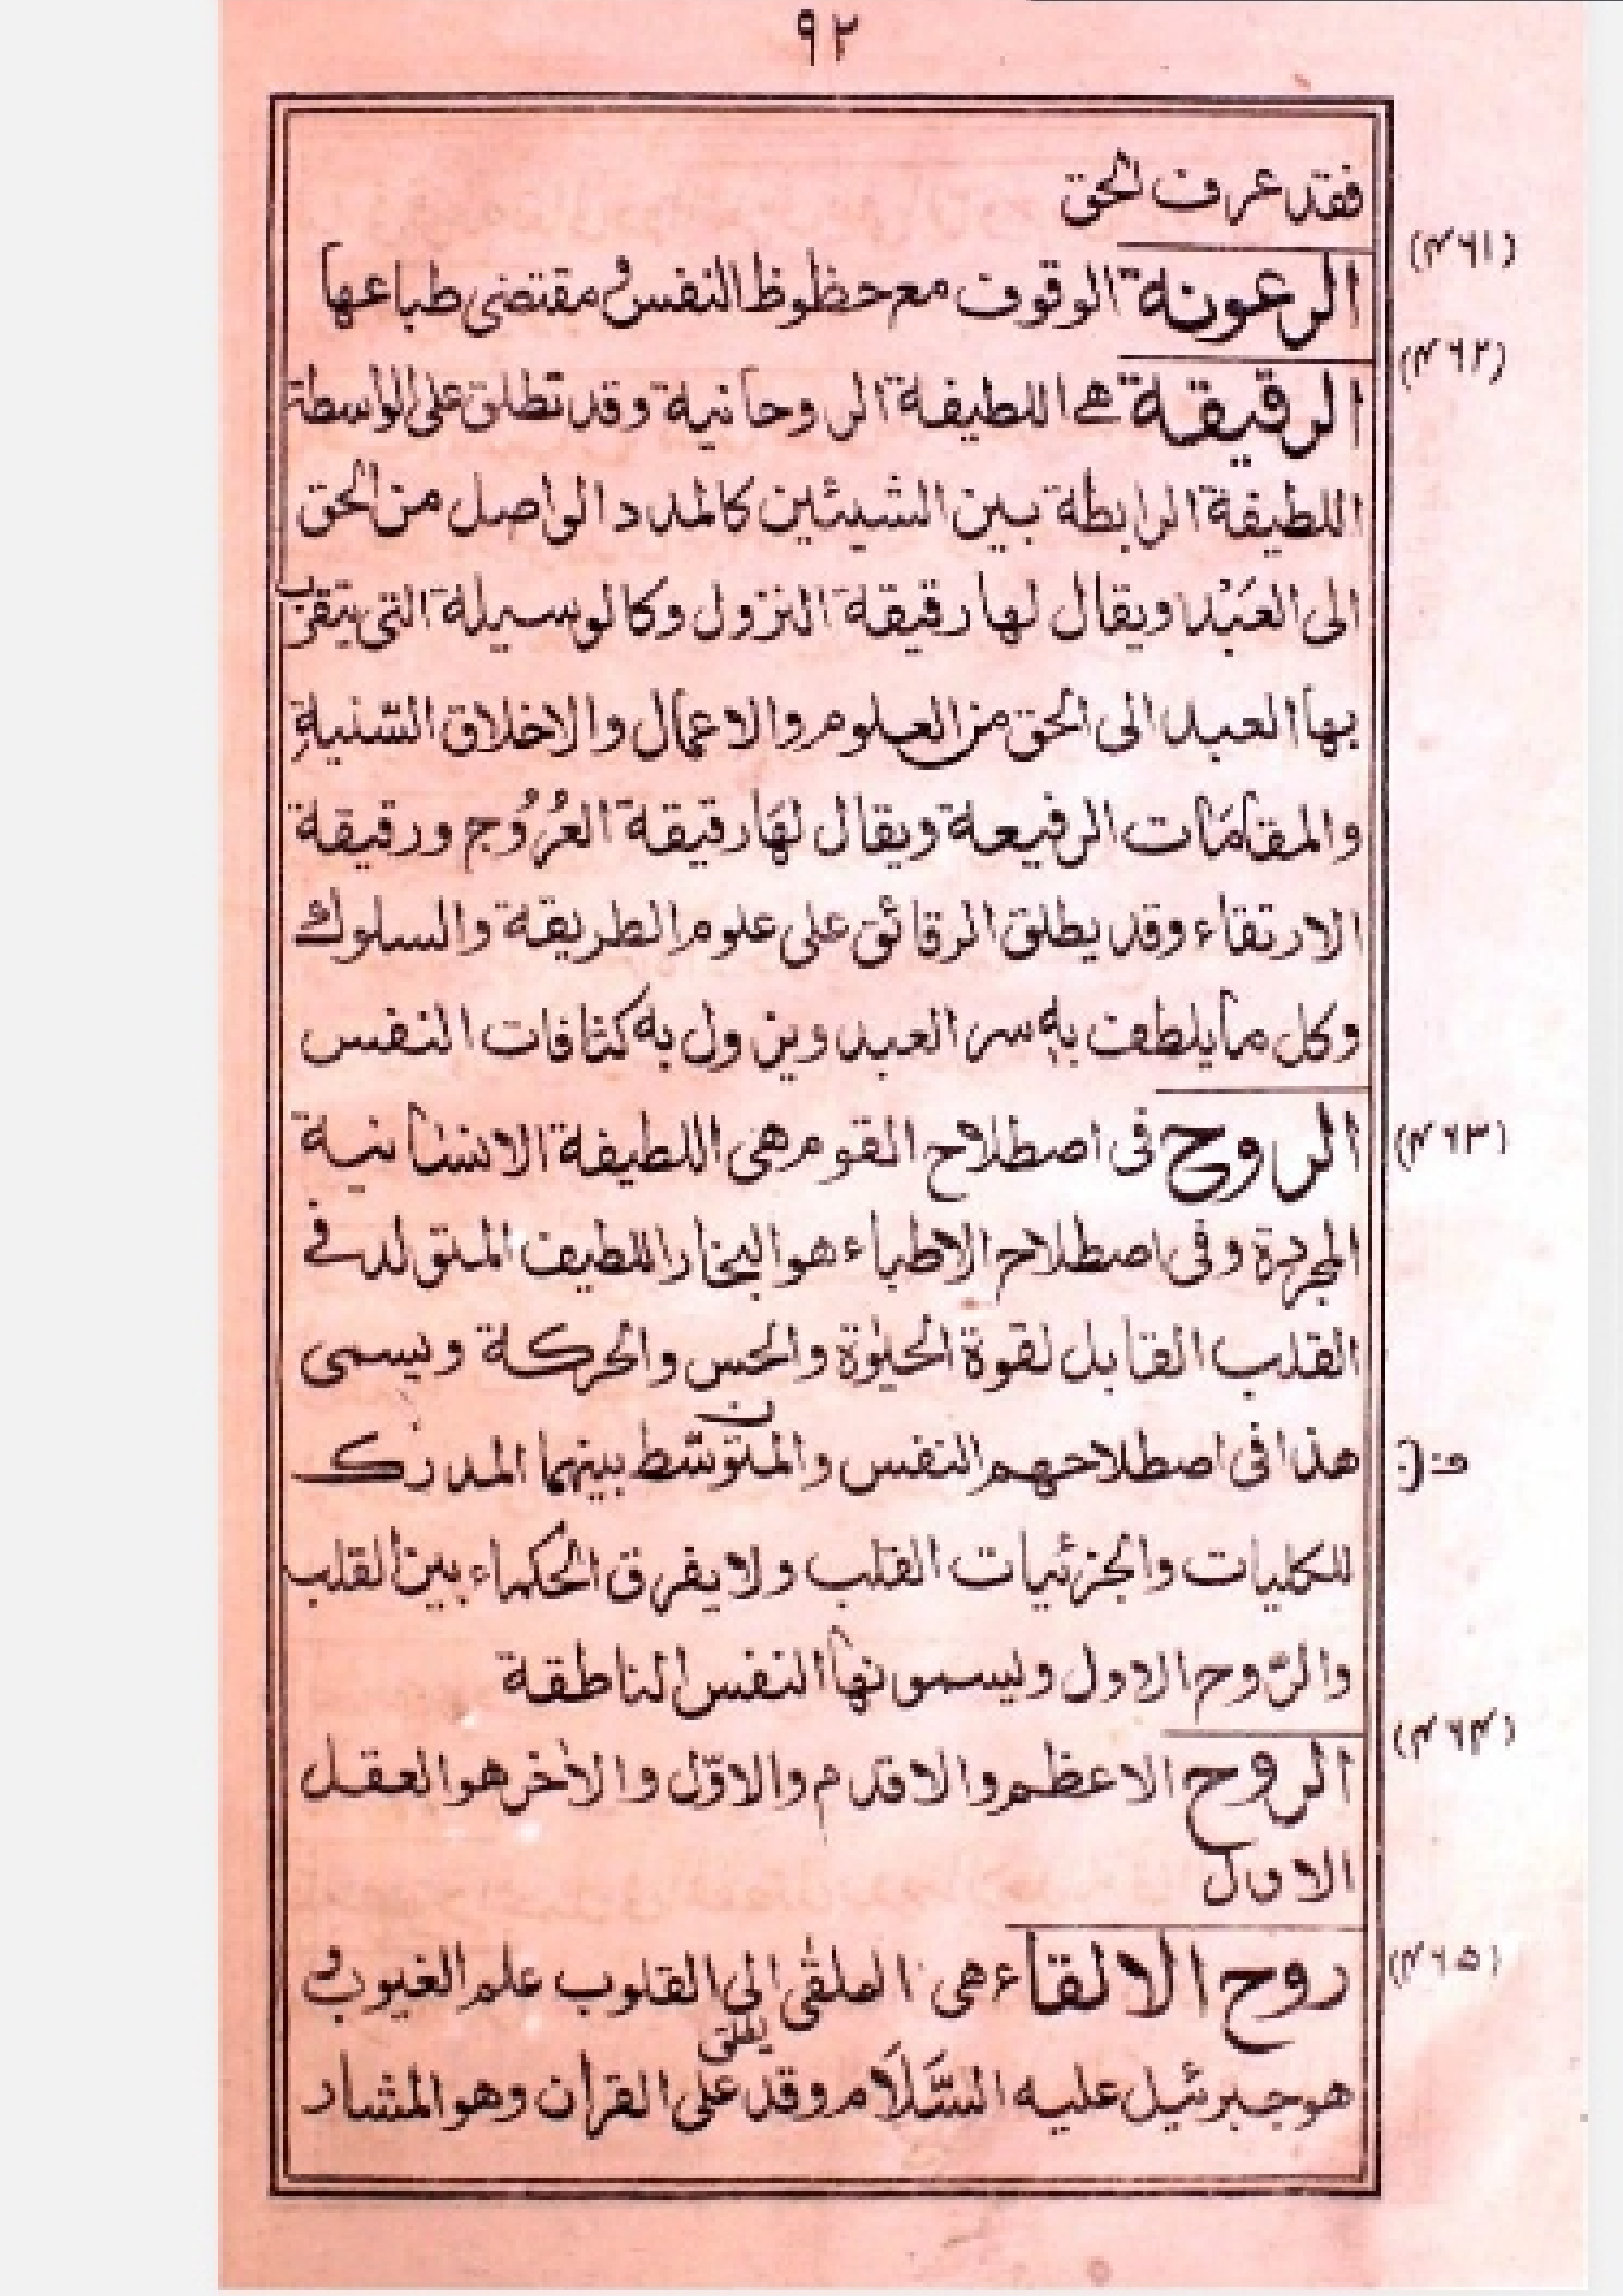 ٩٢
فقد عرف الحق
(٤٦١)
الرعونة الوقوف مع حظوظ النفس و مقتضى طباعها
(٤٦٢)
الرقيقة هے اللطيفة الروحانية وقد تطلق على الواسطة
اللطيفة الرابطة بين الشيئين كالمدد الواصل من الحق
الى العَبْد ويقال لها رقيقة النزول وكالوسيلة التى يتقرب
بها العبد الى الحق من العلوم والاعمال والاخلاق السّنيةِ
والمقامَات الرفيعة ويقال لهَا رقيقة العُرُوج ورقيقة
الارتقاء وقد يطلق الرقائق على علوم الطريقة والسلوك
وكل ما يلطف بهٖ سر العبد ويزول به كثافات النفس
(٤٦٣)
الروح فى اصطلاح القوم هى اللطيفة الانسانية
المجردة وفى اصطلاح الاطباء هو البخار اللطيف المتولد فے
القلب القابل لقوة الحيٰوة والحس والحركة ويسمى
هذا فى اصطلاحهم النفس والمتوسّط بينهما المدرك
للكليات والجزئيات القلب ولا يفرق الحكماء بين القلب
والرّوح الاول ويسمونها النفس الناطقة
(٤٦٤)
الروح الاعظم والاقدم والاوّل والاٰخر هو العقل
الاول
(٤٦٥)
روح الالقاء هى الملقٰى الى القلوب علم الغيوب و
هو جبرئيل عليه السَّلَام وقد يطلق على القراٰن وهو المشار